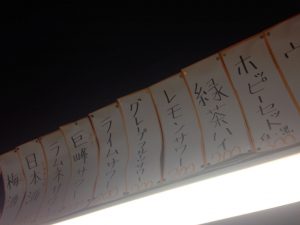 ホッピーセット
緑茶ハイ
レモンサワー
グレープフルーツサワー
ライムサワー
巨峰サワー
ラムネサワー
日本酒
梅酒